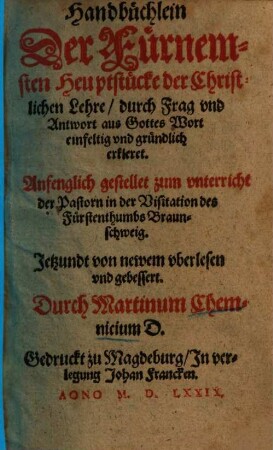 Handbüchlein
Der Fürnem-
sten Heuptstücke der Christ-
lichen Lehre / durch Frag vnd
Antwort aus Gottes Wort
einfeltig vnd gründlich
erkleret.
Anfenglich gestellet zum vnterricht
der Pastorn in der Visitation des
Fürstenthumbs Braun-
schweig.
Jetzundt von newem vberlesen
vnd gebessert.
Durch Martinum Chem-
nicium D.
Gedruckt zu Magdeburg / In ver-
legung Johan Francken.
ANNO M. D. LXXIX.